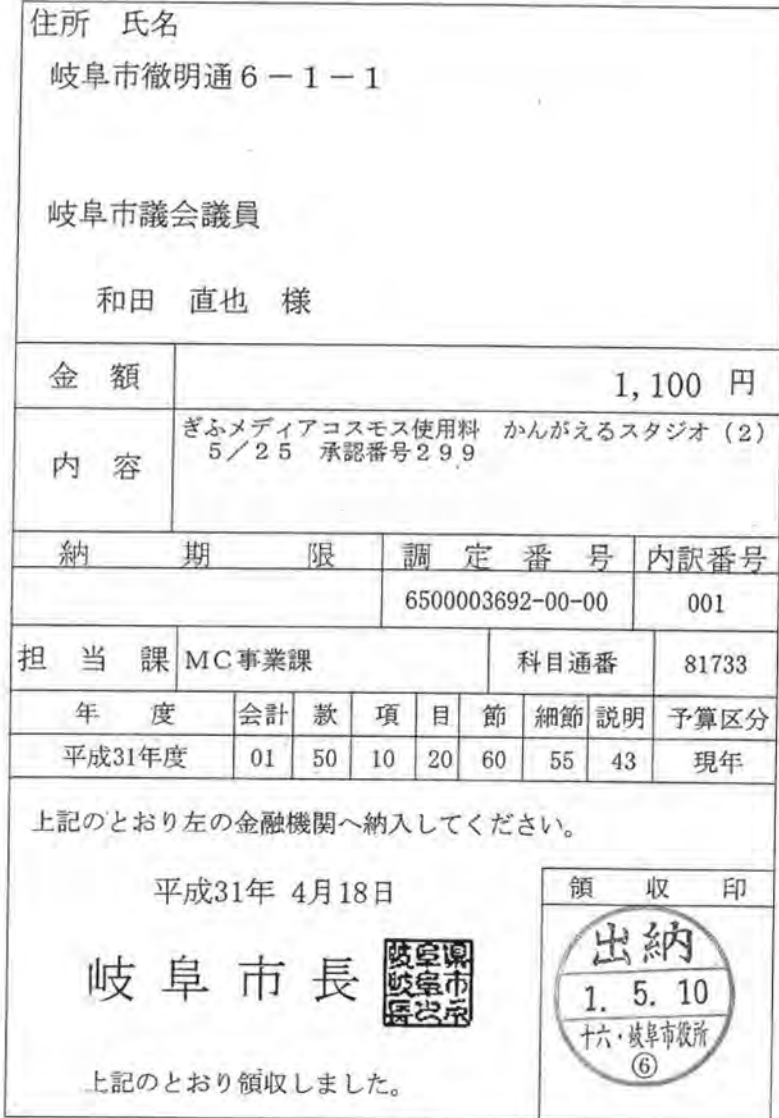 住所 氏名
岐阜市徹明通6-1-1
岐阜市議会議員
和田 直也 様
金 額 1,100 円
内 容 ぎふメディアコスモス使用料 かんがえるスタジオ(2)
5/25 承認番号299
納 期 限 調 定 番 号 内訳番号
6500003692-00-00 001
担 当 課 MC事業課 科目通番 81733
年 度 会計 款 項 目 節 細節 説明 予算区分
平成31年度 01 50 10 20 60 55 43 現年
上記のとおり左の金融機関へ納入してください。
平成31年 4月18日
岐阜市長
上記のとおり領収しました。
領 収 印
出納
1. 5. 10
十六・岐阜市役所
⑥